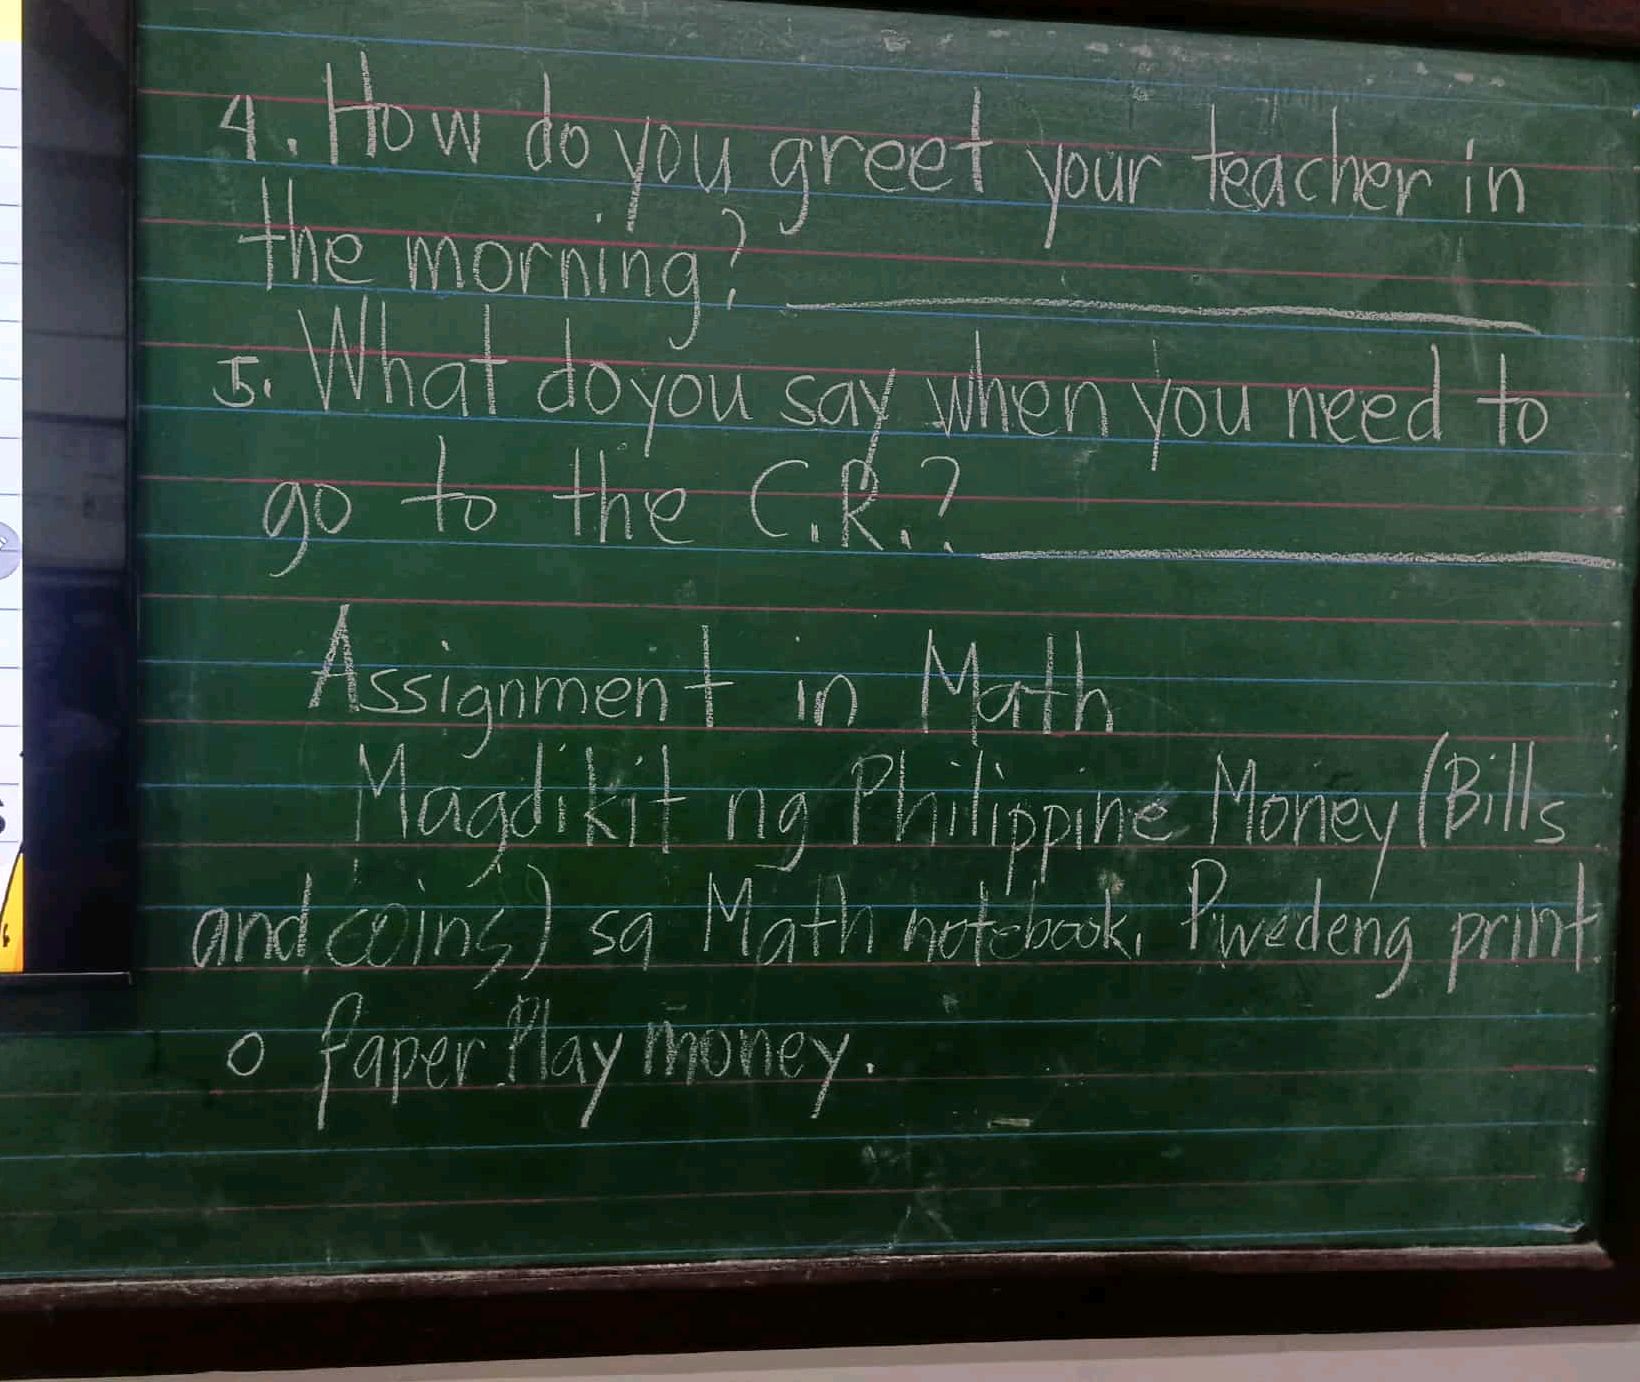 4. How do you greet your teacher in
the morning?
5. What do you say when you need to
go to the C.R.?
Assignment in Math
Magdikit ng Philippine Money (Bills
and coins) sa Math notebook. Pwedeng print
o paper Play money.